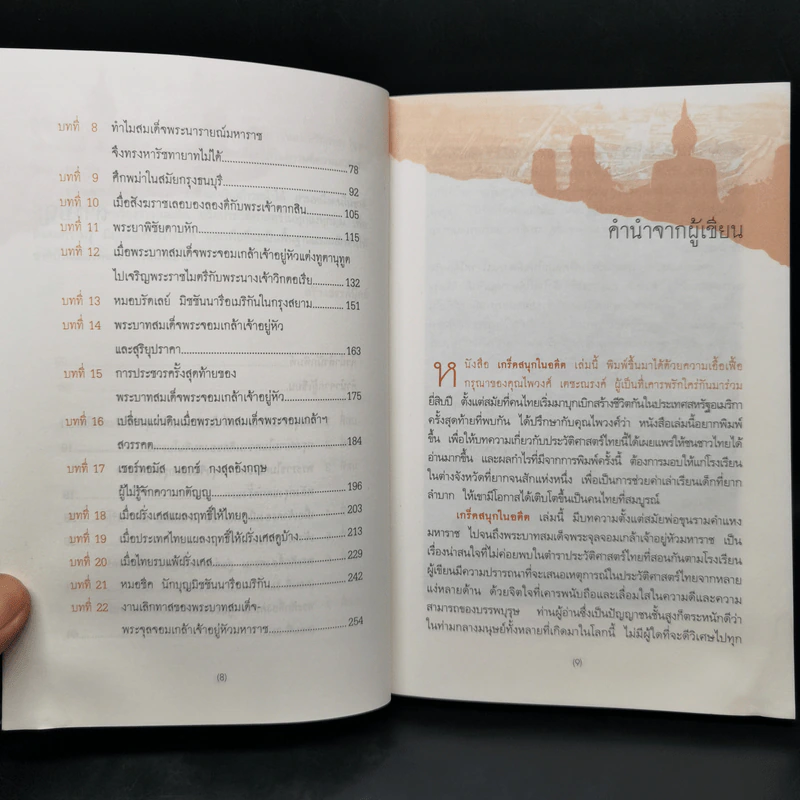 บทที่ 8 ทำไมสมเด็จพระนารายณ์มหาราช
จึงทรงหารัชทายาทไม่ได้ 78
บทที่ 9 ศึกพม่าในสมัยกรุงธนบุรี 92
บทที่ 10 เมื่อสังฆราชเลอบองลองดีกับพระเจ้าตากสิน 105
บทที่ 11 พระยาพิชัยดาบหัก 115
บทที่ 12 เมื่อพระบาทสมเด็จพระจอมเกล้าเจ้าอยู่หัวแต่งทูตานุทูต
ไปเจริญพระราชไมตรีกับพระนางเจ้าวิกตอเรีย 132
บทที่ 13 หมอบรัดเลย์ มิชชันนารีอเมริกันในกรุงสยาม 151
บทที่ 14 พระบาทสมเด็จพระจอมเกล้าเจ้าอยู่หัว
และสุริยุปราคา 163
บทที่ 15 การประชวรครั้งสุดท้ายของ
พระบาทสมเด็จพระจอมเกล้าเจ้าอยู่หัว 175
บทที่ 16 เปลี่ยนแผ่นดินเมื่อพระบาทสมเด็จพระจอมเกล้าฯ
สวรรคต 184
บทที่ 17 เซอร์ทอมัส นอกซ์ กงสุลอังกฤษ
ผู้ไม่รู้จักความกตัญญู 196
บทที่ 18 เมื่อฝรั่งเศสแผลงฤทธิ์ให้ไทยดู 203
บทที่ 19 เมื่อประเทศไทยแผลงฤทธิ์ให้ฝรั่งเศสดูบ้าง 213
บทที่ 20 เมื่อไทยรบแพ้ฝรั่งเศส 229
บทที่ 21 หมอชีค นักบุญมิชชันนารีอเมริกัน 242
บทที่ 22 งานเลิกทาสของพระบาทสมเด็จ-
พระจุลจอมเกล้าเจ้าอยู่หัวมหาราช 254
(8)
คำนำจากผู้เขียน
หนังสือ เกร็ดสนุกในอดีต เล่มนี้ พิมพ์ขึ้นมาได้ด้วยความเอื้อเฟื้อ
กรุณาของคุณไพวงศ์ เตชะณรงค์ ผู้เป็นที่เคารพรักใคร่กันมาร่วม
ยี่สิบปี ตั้งแต่สมัยที่คนไทยเริ่มมาบุกเบิกสร้างชีวิตกันในประเทศสหรัฐอเมริกา
ครั้งสุดท้ายที่พบกัน ได้ปรึกษากับคุณไพวงศ์ว่า หนังสือเล่มนี้อยากพิมพ์
ขึ้น เพื่อให้บทความเกี่ยวกับประวัติศาสตร์ไทยนี้ได้เผยแพร่ให้ชนชาวไทยได้
อ่านมากขึ้น และผลกำไรที่มีจากการพิมพ์ครั้งนี้ ต้องการมอบให้แก่โรงเรียน
ในต่างจังหวัดที่ยากจนสักแห่งหนึ่ง เพื่อเป็นการช่วยค่าเล่าเรียนเด็กที่ยาก
ลำบาก ให้เขามีโอกาสได้เติบโตขึ้นเป็นคนไทยที่สมบูรณ์
เกร็ดสนุกในอดีต เล่มนี้ มีบทความตั้งแต่สมัยพ่อขุนรามคำแหง
มหาราช ไปจนถึงพระบาทสมเด็จพระจุลจอมเกล้าเจ้าอยู่หัวมหาราช เป็น
เรื่องน่าสนใจที่ไม่ค่อยพบในตำราประวัติศาสตร์ไทยที่สอนกันตามโรงเรียน
ผู้เขียนมีความปรารถนาที่จะเสนอเหตุการณ์ในประวัติศาสตร์ไทยจากหลาย
แง่หลายด้าน ด้วยจิตใจที่เคารพนับถือและเลื่อมใสในความดีและความ
สามารถของบรรพบุรุษ ท่านผู้อ่านซึ่งเป็นปัญญาชนชั้นสูงก็ตระหนักดีว่า
ในท่ามกลางมนุษย์ทั้งหลายที่เกิดมาในโลกนี้ ไม่มีผู้ใดที่จะดีวิเศษไปทุก
(9)